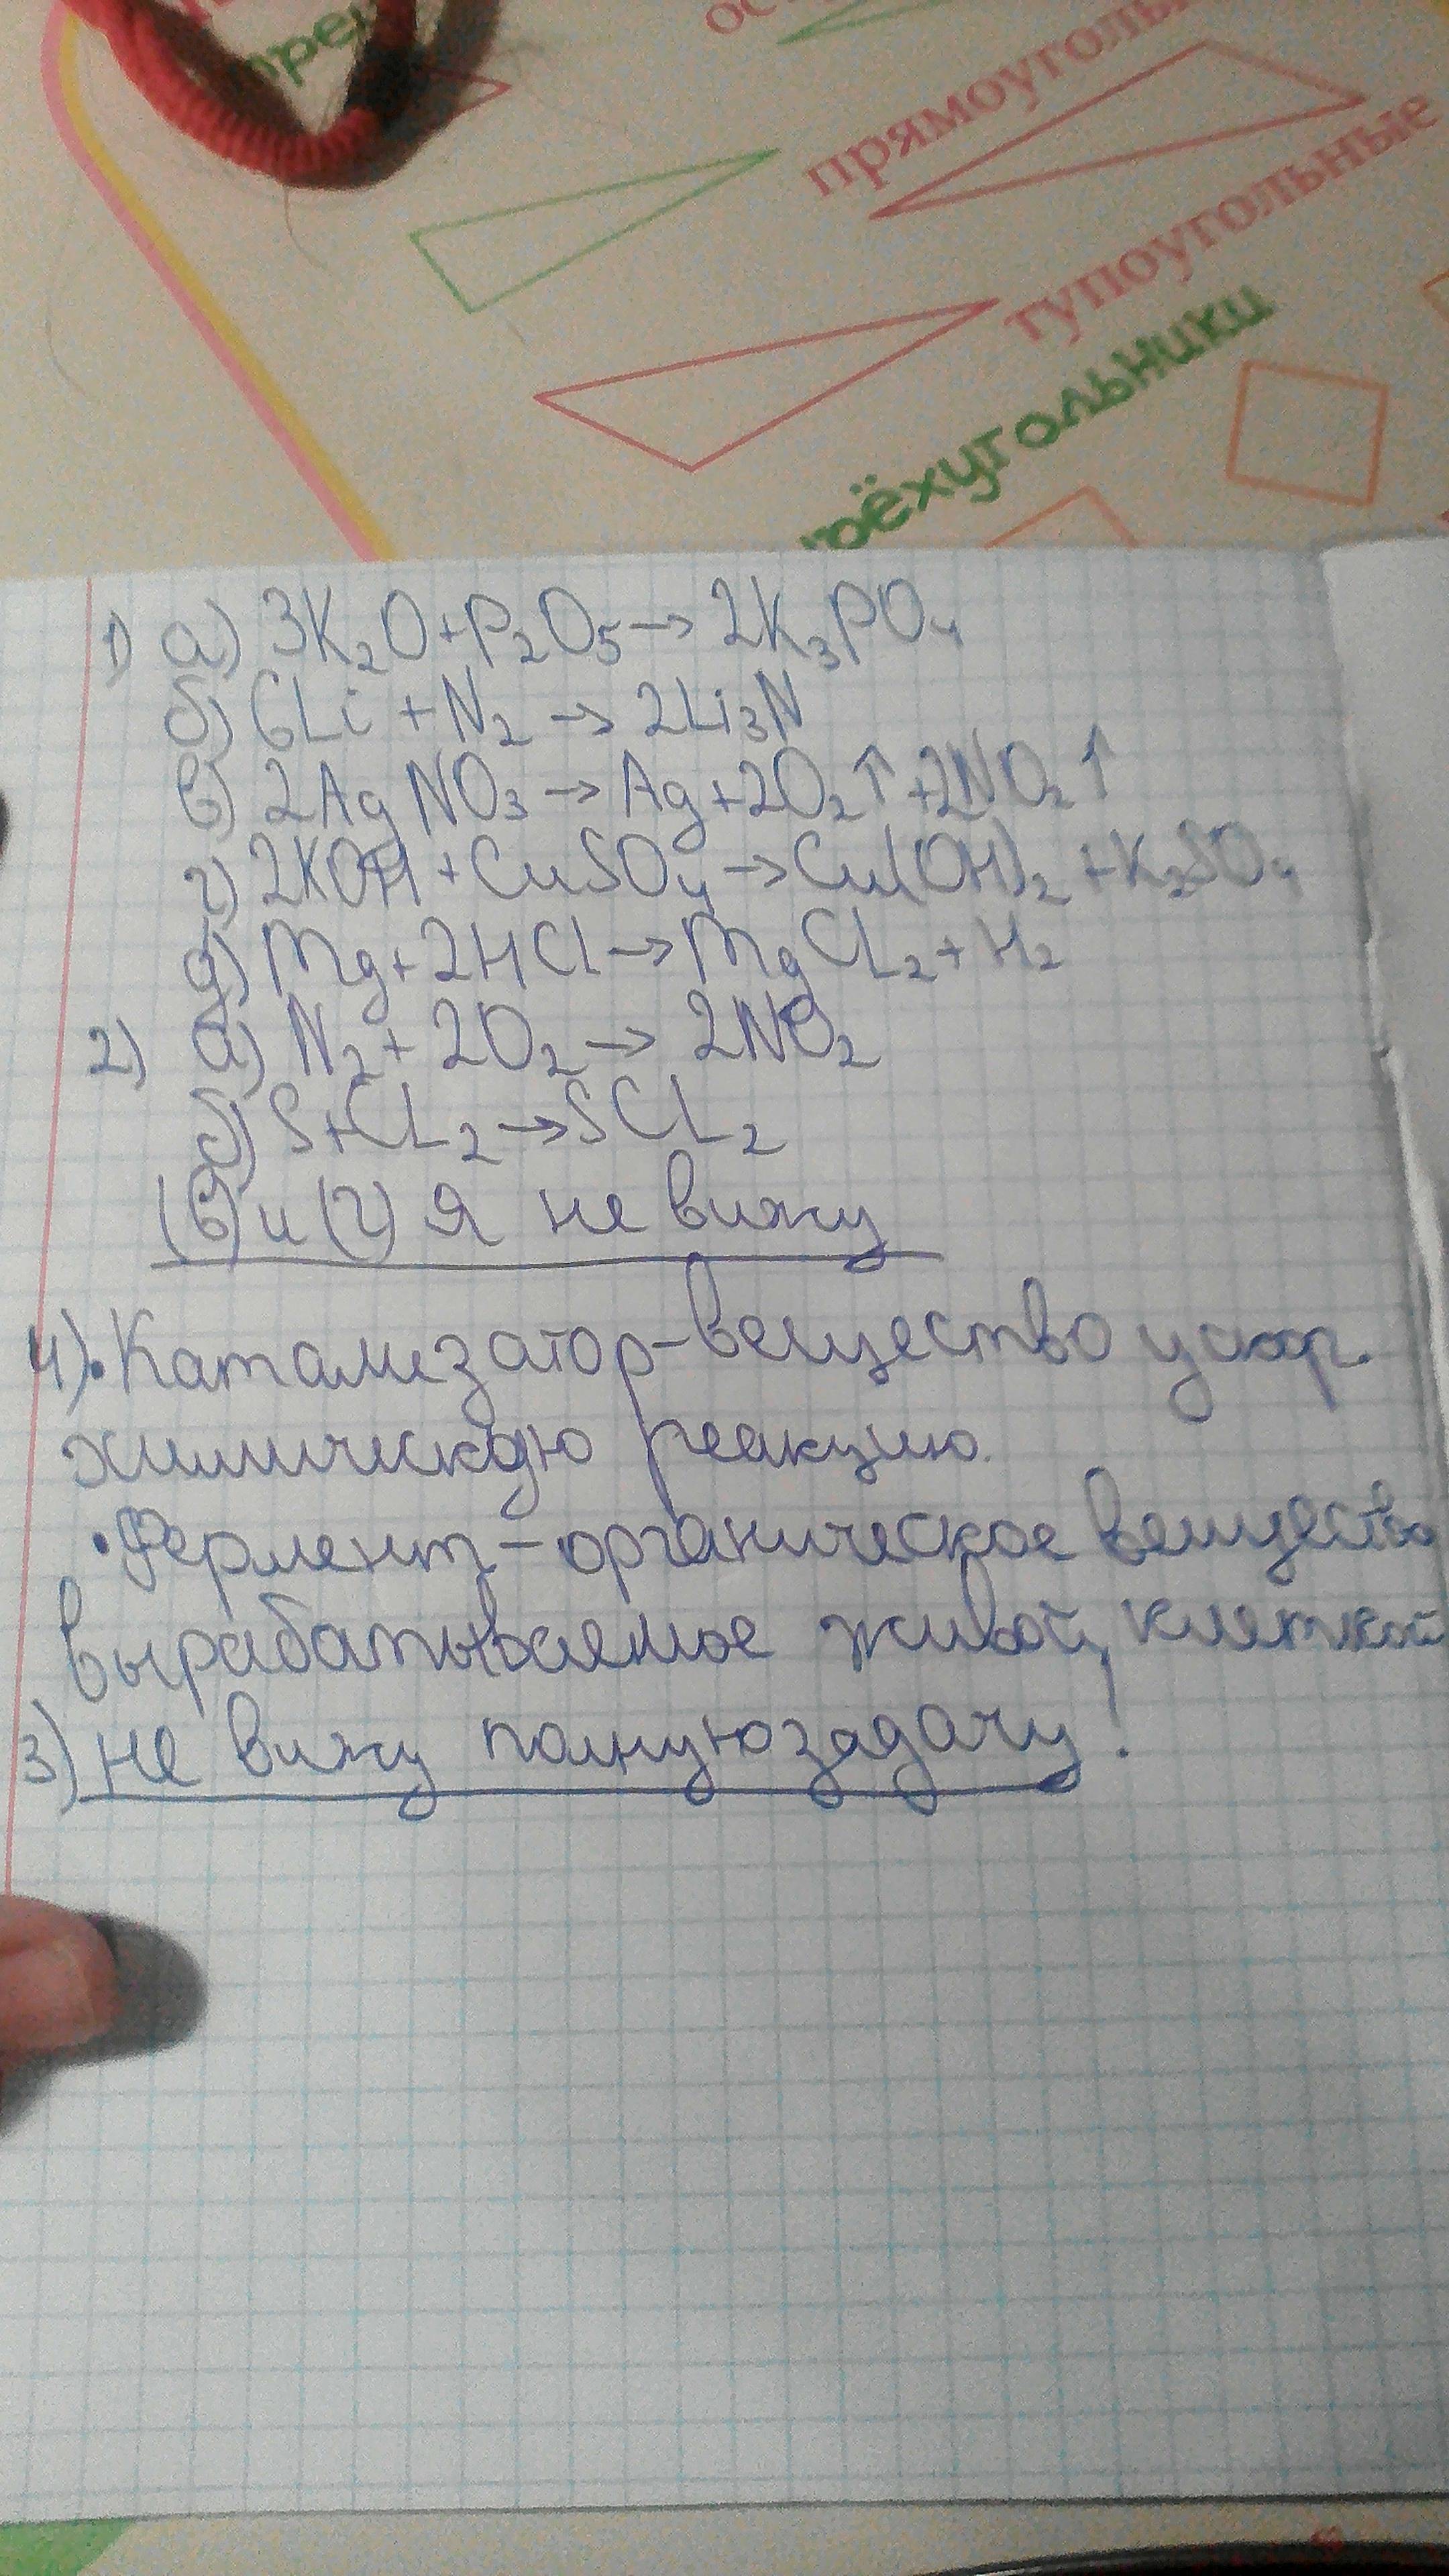 прямоуголь
тупоугольные
рёхугольники
1) а) 3K₂O+P₂O₅→2K₃PO₄
б) 6Li+N₂→2Li₃N
в) 2AgNO₃→Ag+2O₂↑+2NO₂↑
г) 2KOH+CuSO₄→Cu(OH)₂+K₂SO₄
д) Mg+2HCl→MgCL₂+H₂
2) а) N₂+2O₂→2NO₂
б) S+CL₂→SCL₂
(в) и (г) Я не вижу
4) • Катализатор-вещество ускор.
химическую реакцию.
• Фермент-органическое вещество
вырабатываемое живой клеткой
3) не вижу полную задачу!